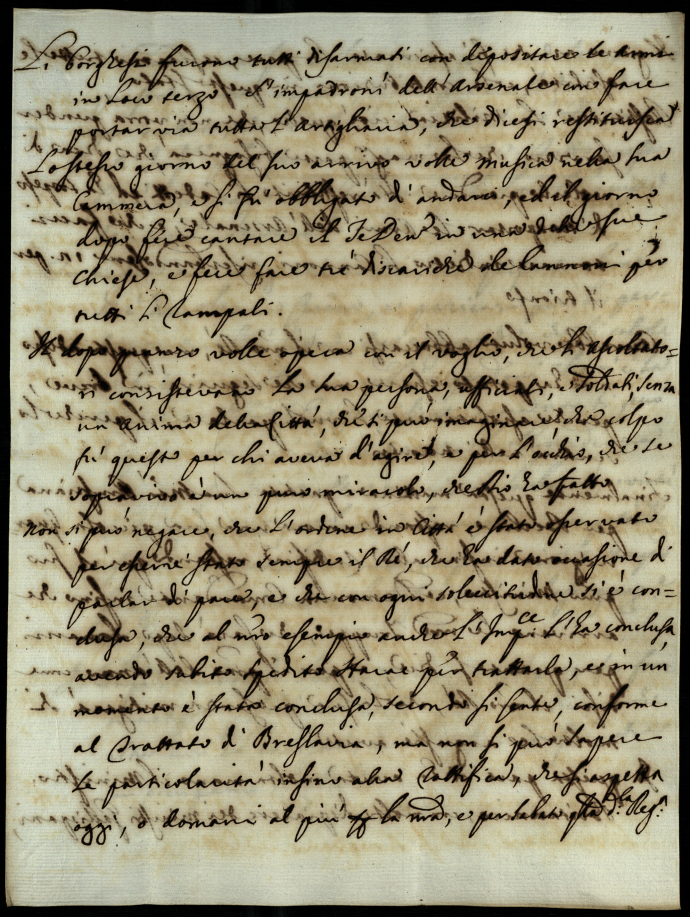 Li Borghesi furono tutti disarmati con depositare le armi
in loco terzo e s'impadronì dell'Arsenale con fare
portar via tutta l'Artigliaria, che dicesi restituirsia
Lo stesso giorno del suo arrivo volle musica nella sua
Cammera, e si fù obbligato d'andarvi, ed il giorno
dopo fece cantare il Te Deum in una delle sue
chiese, e fece fare trè discariche de Cannoni per
tutti li Rampali.
Il dopo pranzo volle opera con il voglio, che li ascoltato=
ri consistevano la sua persona, ufficiali, e soldati, senza
un anima della Città, che ti può imaginare che colpo
fù questo per chi aveva d'agire, e per l'occhio, che se
sopravivo è un puro miracolo, che Dio ha fatto
Non si può negare, che l'ordine in Città è stato osservato
per esserne stato sempre il Rè, che ha dato occasione di
parlar di pace, e che con ogni solecitudine si è con=
clusa, che al nro esempio anche l'Impce l'ha conclusa,
avendo subito spedito Harac per trattarla, e in un
momento è stata conclusa, secondo si sente, conforme
al Trattato di Breslavia, ma non si può sapere
le particolarità insino alla rattifica, che si aspetta
oggi, o domani al più la nra, e per sabato qlla d.la Reg.a